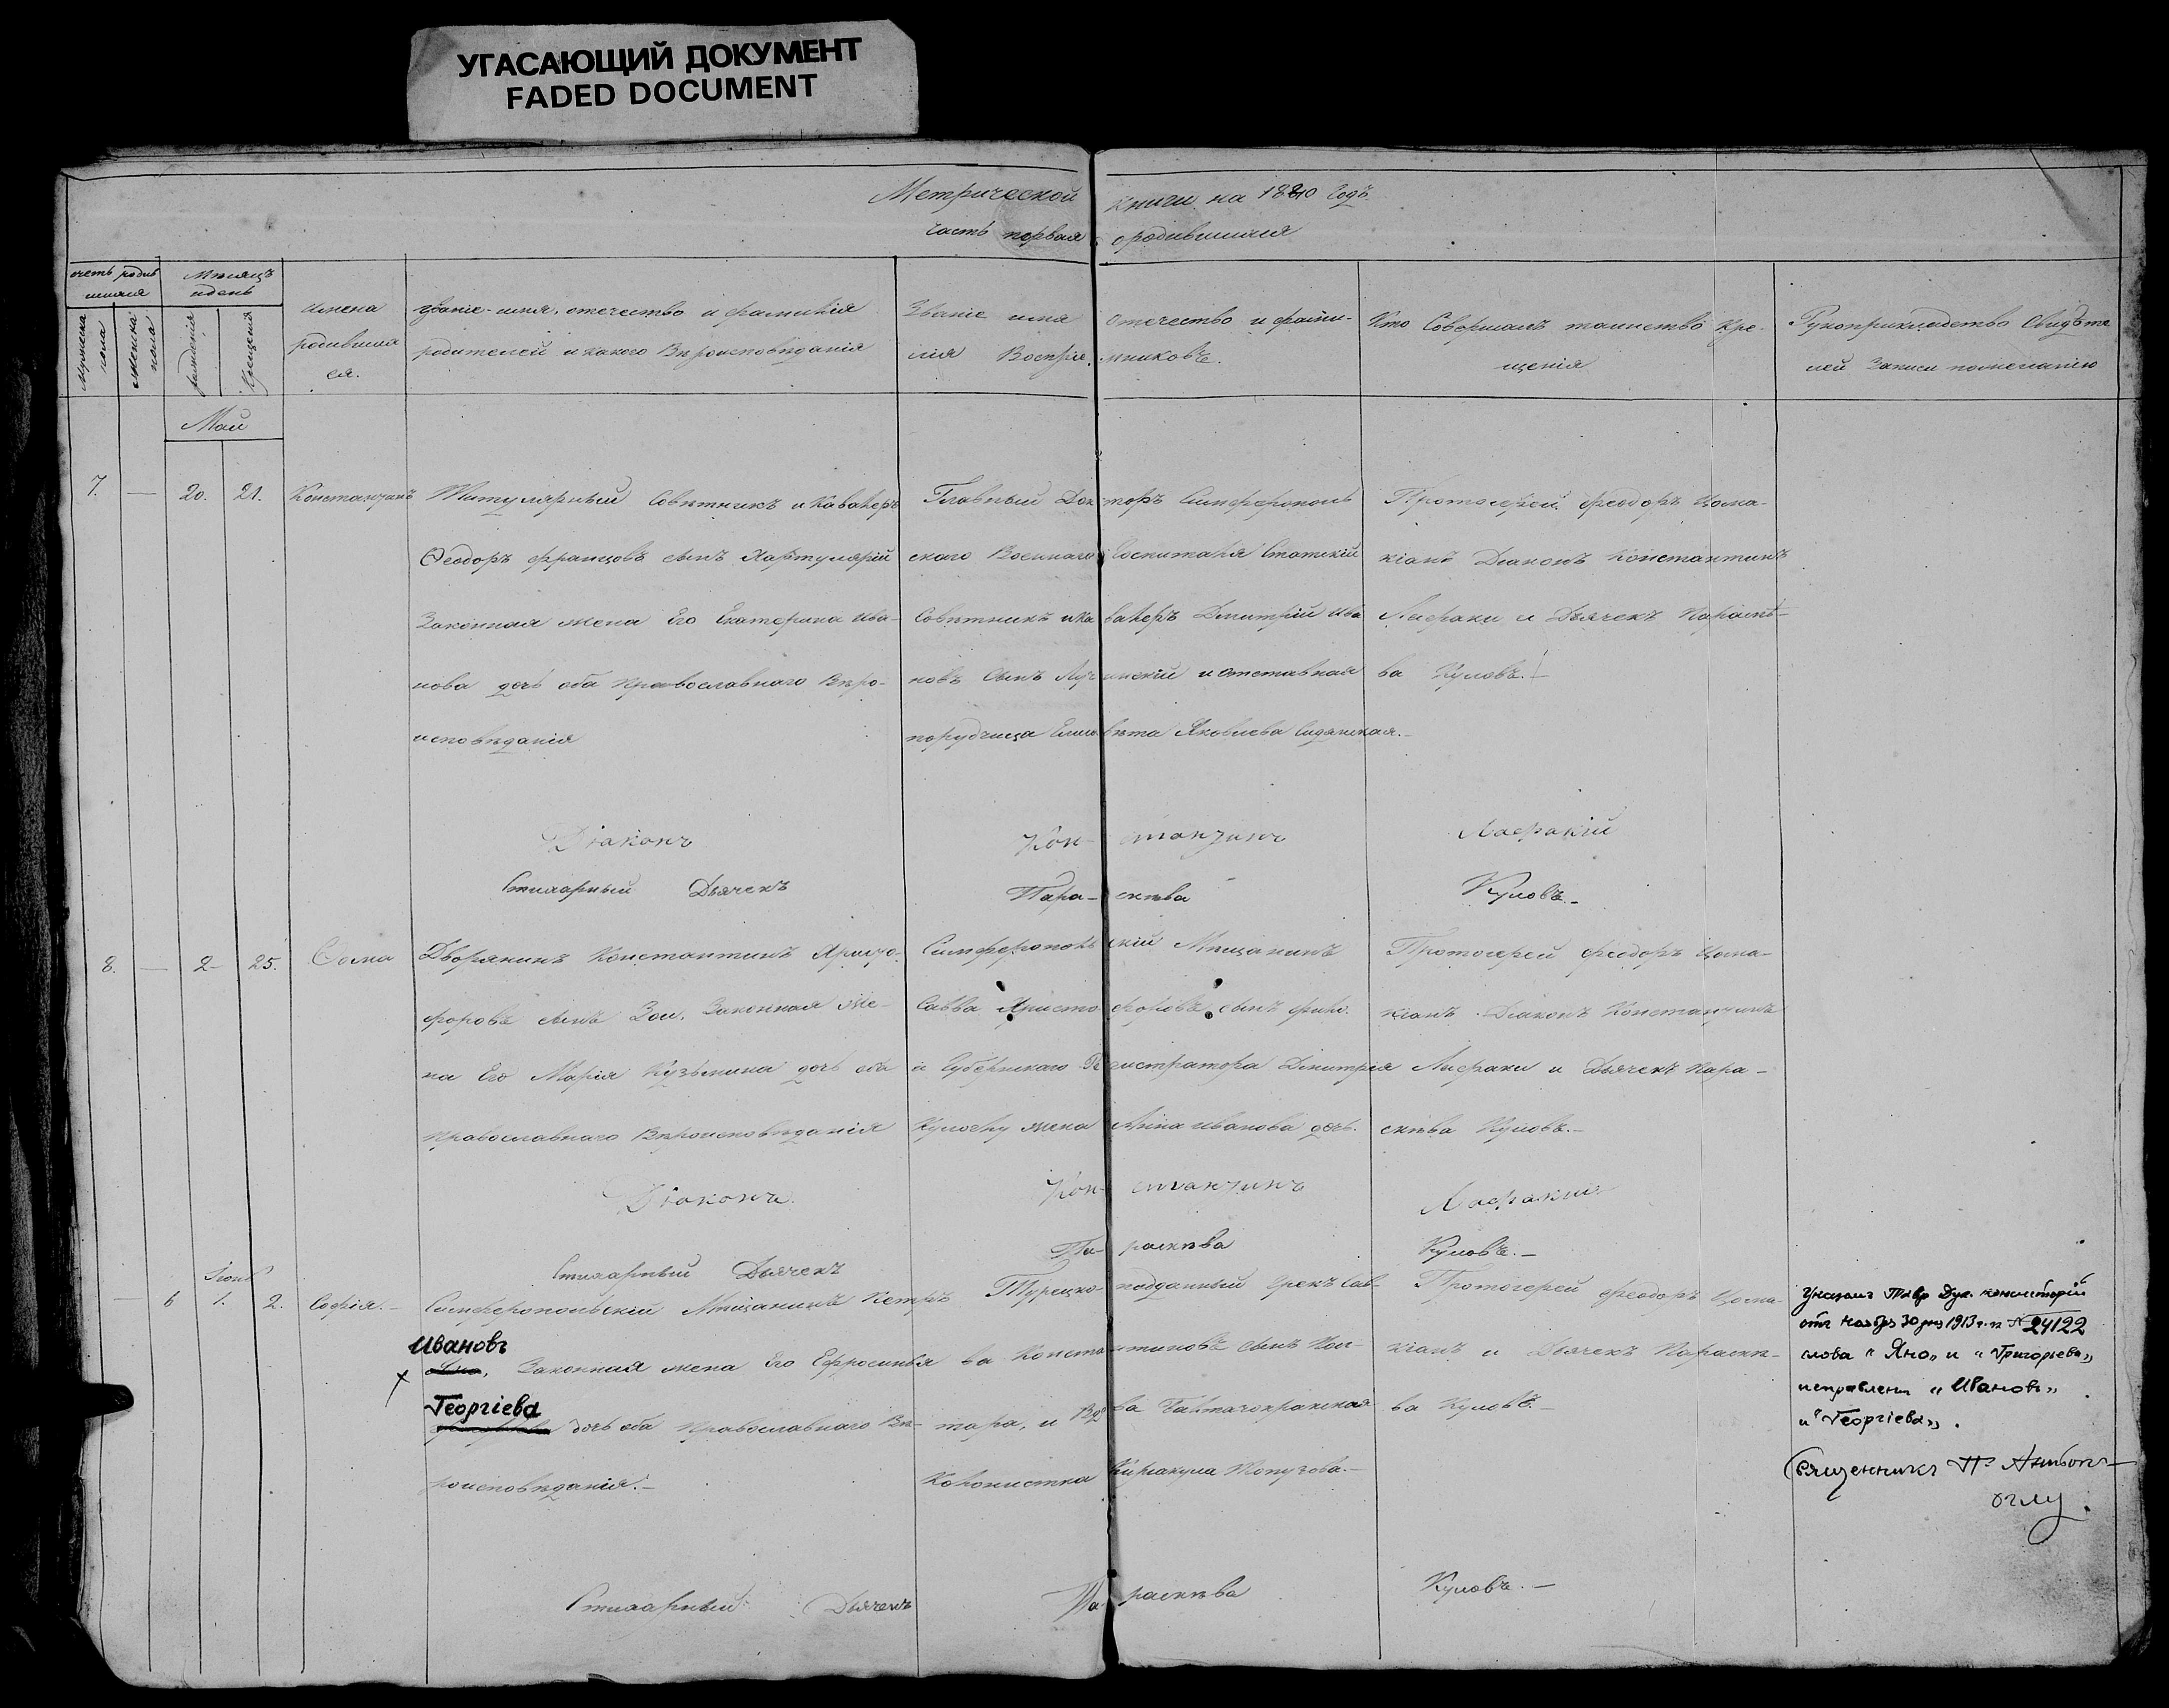 УГАСАЮЩИЙ ДОКУМЕНТ
FADED DOCUMENT
Метрической книги на 1840 годъ.
часть первая о родившихся
счетъ родив
шихся
Мѣсяцъ
и день
мужска
пола
женска
пола
рожденія
крещенія
имена
родивших
ся.
Званіе, имя, отечество и фамилія
родителей и какого Вѣроисповѣданія
Званіе имя отечество и фами-
лія Воспріемниковъ.
Кто Совершалъ таинство кре-
щенія
Рукоприкладство Свидѣте
лей Записи по желанію
Май
7. — 20. 21. Константинъ
Титулярный Совѣтникъ и Кавалеръ
Феодоръ Францовъ сынъ Хартулярій
Законная жена Его Екатерина Ива-
нова дочь оба Православнаго Вѣро-
исповѣданія
Главный Докторъ Симферополь
скаго Военнаго Госпиталя Статскій
Совѣтникъ и Кавалеръ Дмитрій Ива
новъ Сынъ и отставная
порутчица Елисавета Яковлева
Протоіерей Феодоръ Цома-
кіанъ Діаконъ Константинъ
Лафаки и Дьячекъ Параскѣ-
ва Куловъ.
Діаконъ Константинъ Лафакій
Стихарный Дьячекъ Параскѣва Куловъ.
8. — 2— 25. Фома
Дворянинъ Константинъ Христо-
форовъ сынъ Зои, Законная же-
на Его Марія Кузьмина дочь оба
Православнаго Вѣроисповѣданія
Симферопольскій Мѣщанинъ
Савва Христофоровъ сынъ
и Губернскаго Регистратора Дмитрія
жена Анна Иванова дочь.
Протоіерей Феодоръ Цома-
кіанъ Діаконъ Константинъ
Лафаки и Дьячекъ Пара-
скѣва Куловъ.—
Діаконъ Константинъ Лафакій
Стихарный Дьячекъ Параскѣва Куловъ.—
Іюнь
— 6 1. 2. Софія.—
Симферопольскій Мѣщанинъ Петръ
Ивановъ
Законная жена Его Ефросинья
Георгіева
дочь оба Православнаго Вѣ-
роисповѣданія.—
Турецко-подданный Грекъ Сав-
ва Константиновъ сынъ
тара, и
Колонистка Киріакула
Протоіерей Феодоръ Цома-
кіанъ и Дьячекъ Параскѣ-
ва Куловъ.—
Указомъ Тавр. Дух. консисторіи
отъ Ноября 30 дня 1913 г. за № 24122
слова "Яно" и "Григорьева"
исправлены "Ивановъ"
и "Георгіева".
Священникъ П.
оглу.
Стихарный Дьячекъ Параскѣва Куловъ.—